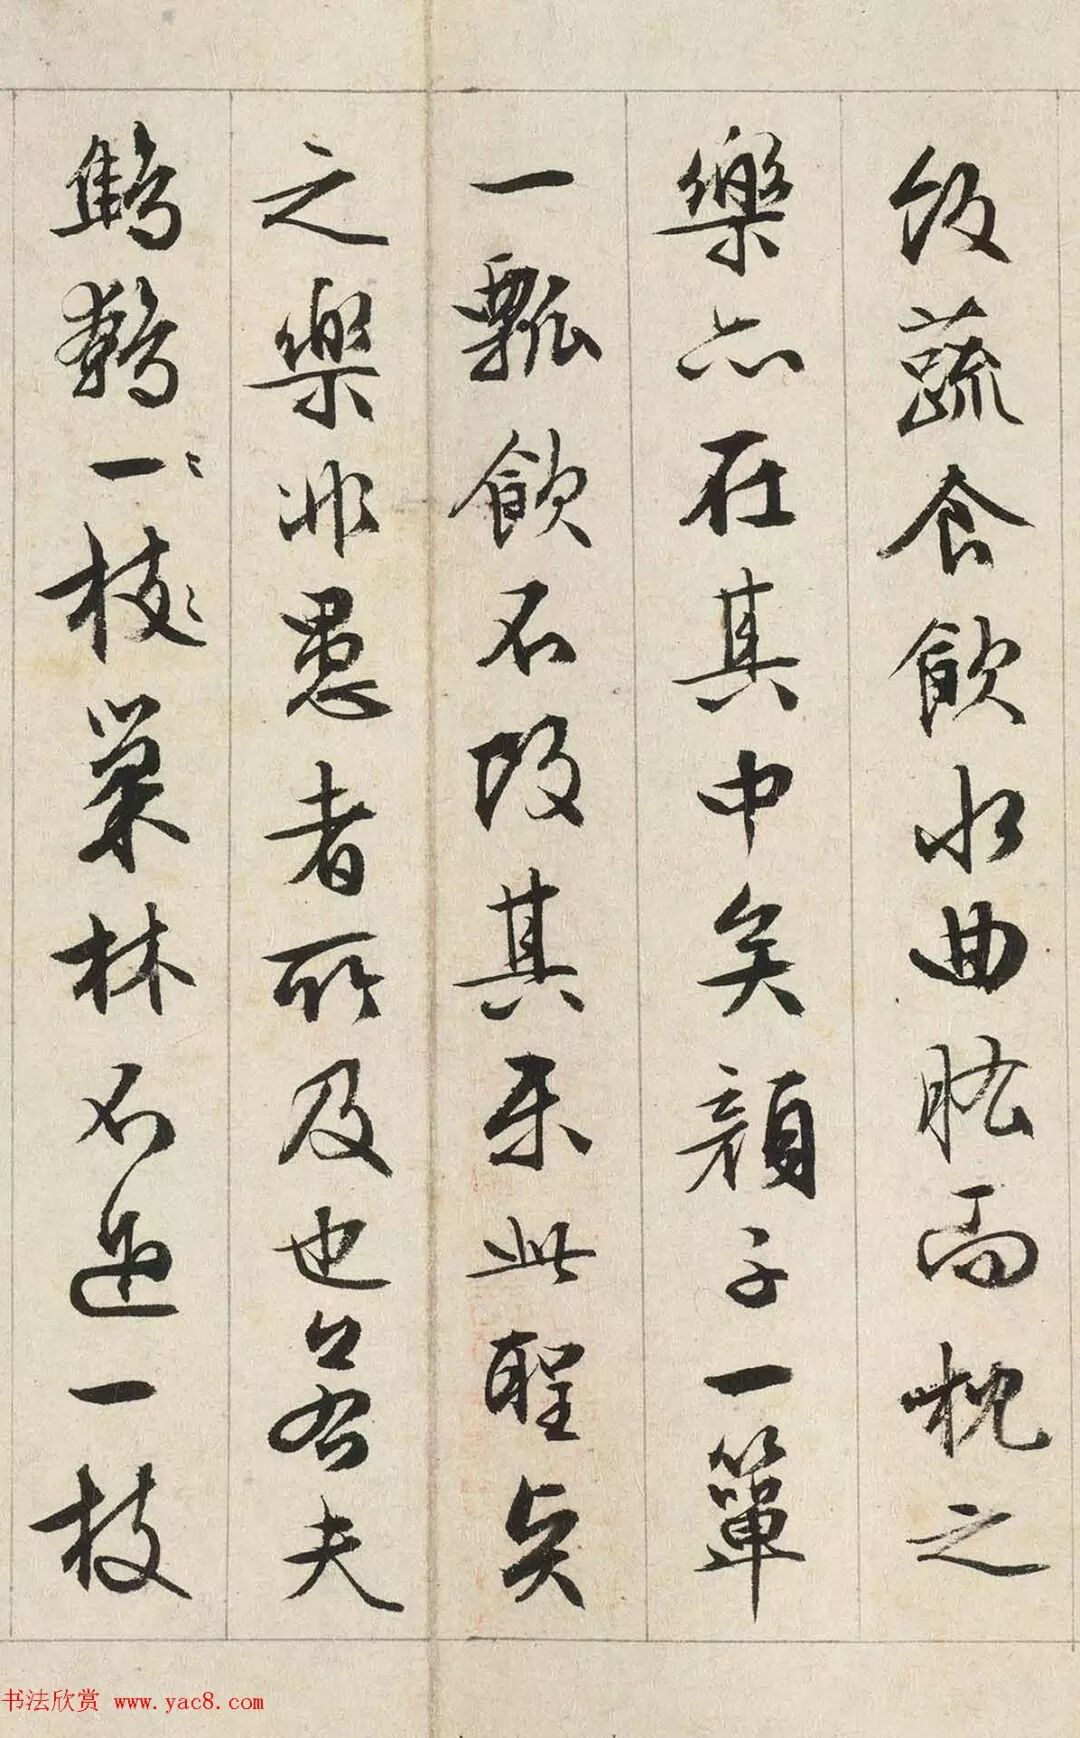 飯蔬食飲水曲肱而枕之
樂亦在其中矣顏子一簞
一瓢飲不改其樂此聖賢
之樂非愚者所及也若夫
鷦鷯一〻枝〻巢林不過一枝
书法欣赏 www.yac8.com